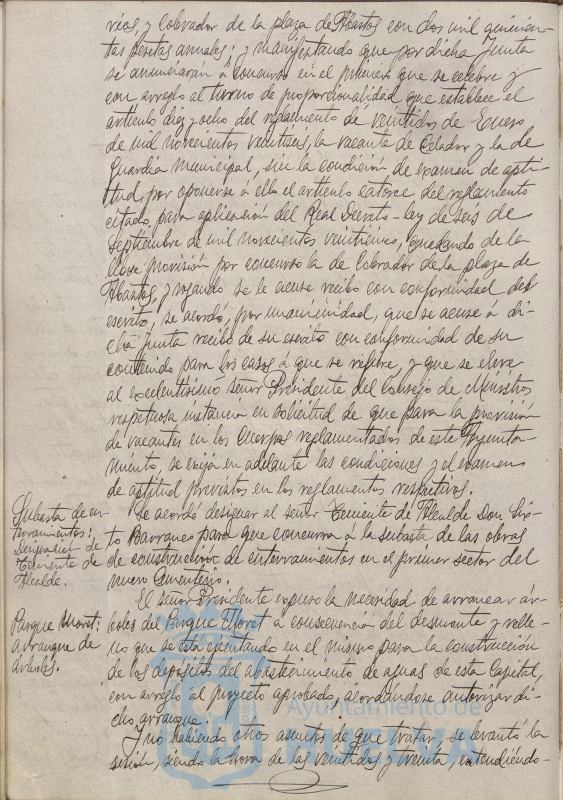 rios, y Cobrador de la plaza de Abastos con dos mil quinien-
tas pesetas anuales; y manifestando que por dicha Junta
se anunciarán á concurso en el primero que se celebre y
con arreglo al turno de proporcionalidad que establece el
artículo diez y ocho del reglamento de veintidos de Enero
de mil novecientos veintiseis, la vacante de Celador y la de
Guardia Municipal, sin la condición de examen de apti-
tud, por oponerse á ello el artículo catorce del reglamento
citado para aplicación del Real Decreto-ley de seis de
Septiembre de mil novecientos veinticinco, quedando de la
libre provisión por concurso la de Cobrador de la plaza de
Abastos, y rogando se le acuse recibo con conformidad del
escrito, se acordó, por unanimidad, que se acuse á di-
cha Junta recibo de su escrito con conformidad de su
contenido para los casos á que se refiere, y que se eleve
al excelentísimo señor Presidente del Consejo de Ministros
respetuosa instancia en solicitud de que para la provisión
de vacantes en los Cuerpos reglamentados de este Ayunta-
miento, se exija en adelante las condiciones y el examen
de aptitud previstos en los reglamentos respectivos.
Subasta de en-
terramientos:
Designación de
Teniente de
Alcalde.
Se acordó designar al señor Teniente de Alcalde Don Six-
to Barranco para que concurra á la subasta de las obras
de construcción de enterramientos en el primer sector del
nuevo Cementerio.
Parque Moret:
arranque de
árboles.
El señor Presidente expuso la necesidad de arrancar ár-
boles del Parque Moret á consecuencia del desmonte y relle-
no que se está ejecutando en el mismo para la construcción
de los depósitos del abastecimiento de aguas de esta Capital,
con arreglo al proyecto aprobado, acordándose autorizar di-
cho arranque.
Y no habiendo otros asuntos de que tratar, se levantó la
sesión, siendo la hora de las veintidos y treinta, extendiéndo-
Ayuntamiento de
HUELVA